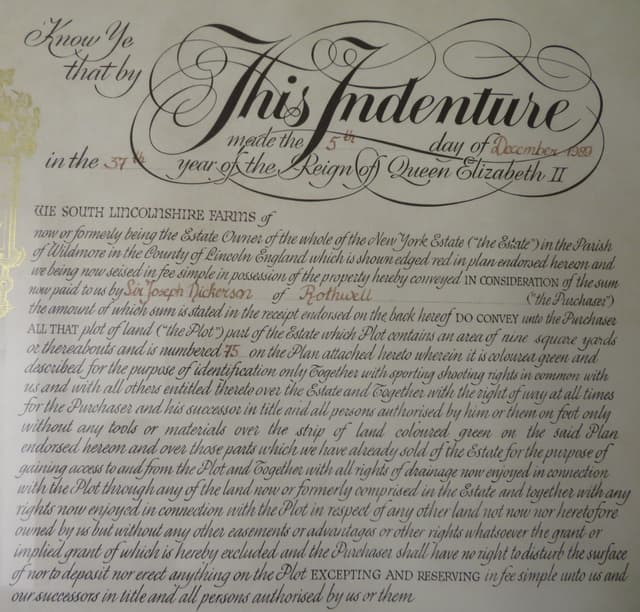 Know Ye
that by
This Indenture
made the 5th day of December 1989
in the 37th year of the Reign of Queen Elizabeth II
WE SOUTH LINCOLNSHIRE FARMS of
now or formerly being the Estate Owner of the whole of the New York Estate ("the Estate") in the Parish
of Wildmore in the County of Lincoln England which is shown edged red in plan endorsed hereon and
we being now seised in fee simple in possession of the property hereby conveyed IN CONSIDERATION of the sum
now paid to us by Sir Joseph Nickerson of Rothwell ("the Purchaser")
the amount of which sum is stated in the receipt endorsed on the back hereof DO CONVEY unto the Purchaser
ALL THAT plot of land ("the Plot") part of the Estate which Plot contains an area of nine square yards
or thereabouts and is numbered 75 on the Plan attached hereto wherein it is coloured green and
described for the purpose of identification only Together with sporting shooting rights in common with
us and with all others entitled thereto over the Estate and Together with the right of way at all times
for the Purchaser and his successor in title and all persons authorised by him or them on foot only
without any tools or materials over the strip of land coloured green on the said Plan
endorsed hereon and over those parts which we have already sold of the Estate for the purpose of
gaining access to and from the Plot and Together with all rights of drainage now enjoyed in connection
with the Plot through any of the land now or formerly comprised in the Estate and together with any
rights now enjoyed in connection with the Plot in respect of any other land not now nor heretofore
owned by us but without any other easements or advantages or other rights whatsoever the grant or
implied grant of which is hereby excluded and the Purchaser shall have no right to disturb the surface
of nor to deposit nor erect anything on the Plot EXCEPTING AND RESERVING in fee simple unto us and
our successors in title and all persons authorised by us or them